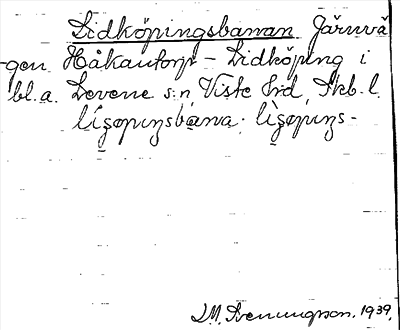 Lidköpingsbanan Järnvä
-gen Håkantorp – Lidköping i
bl.a. Levene s:n Viste hrd, Skb. l.
lįʒøpıŋsbąna. lìʒøpıŋs-
L.M. Svenungsson. 1939.